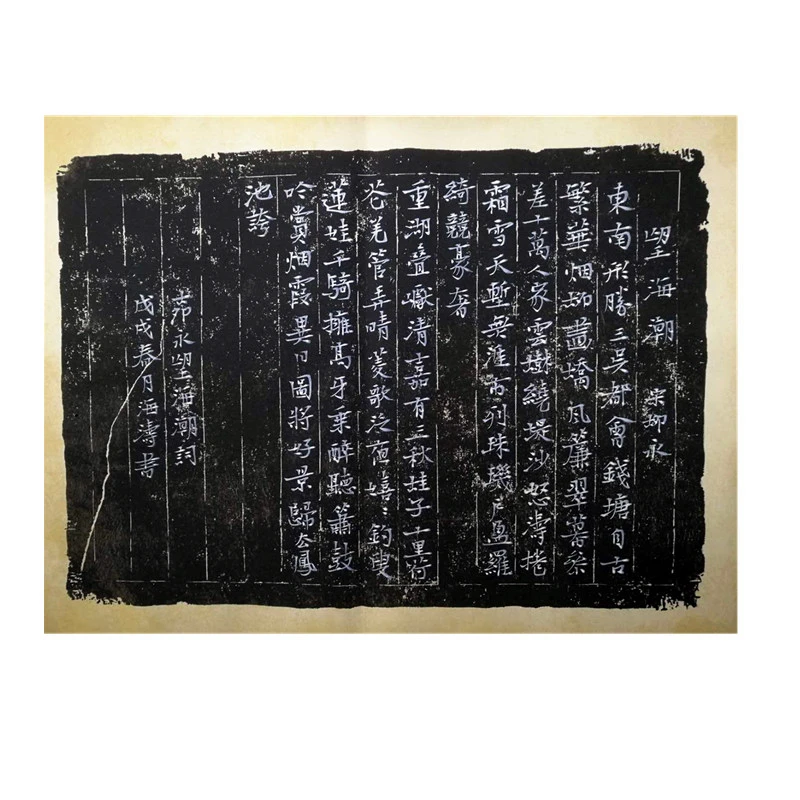 望海潮 宋柳永
東南形勝三吳都會錢塘自古
繁華烟柳畫橋風簾翠幕參
差十萬人家雲樹繞堤沙怒濤捲
霜雪天塹無涯市列珠璣戶盈羅
綺競豪奢
重湖疊巘清嘉有三秋桂子十里荷
花羌管弄晴菱歌泛夜嬉〻釣叟
蓮娃千騎擁高牙乘醉聽簫鼓
吟賞烟霞異日圖將好景歸去鳳
池誇
永望海潮詞
戊戌春月海濤書